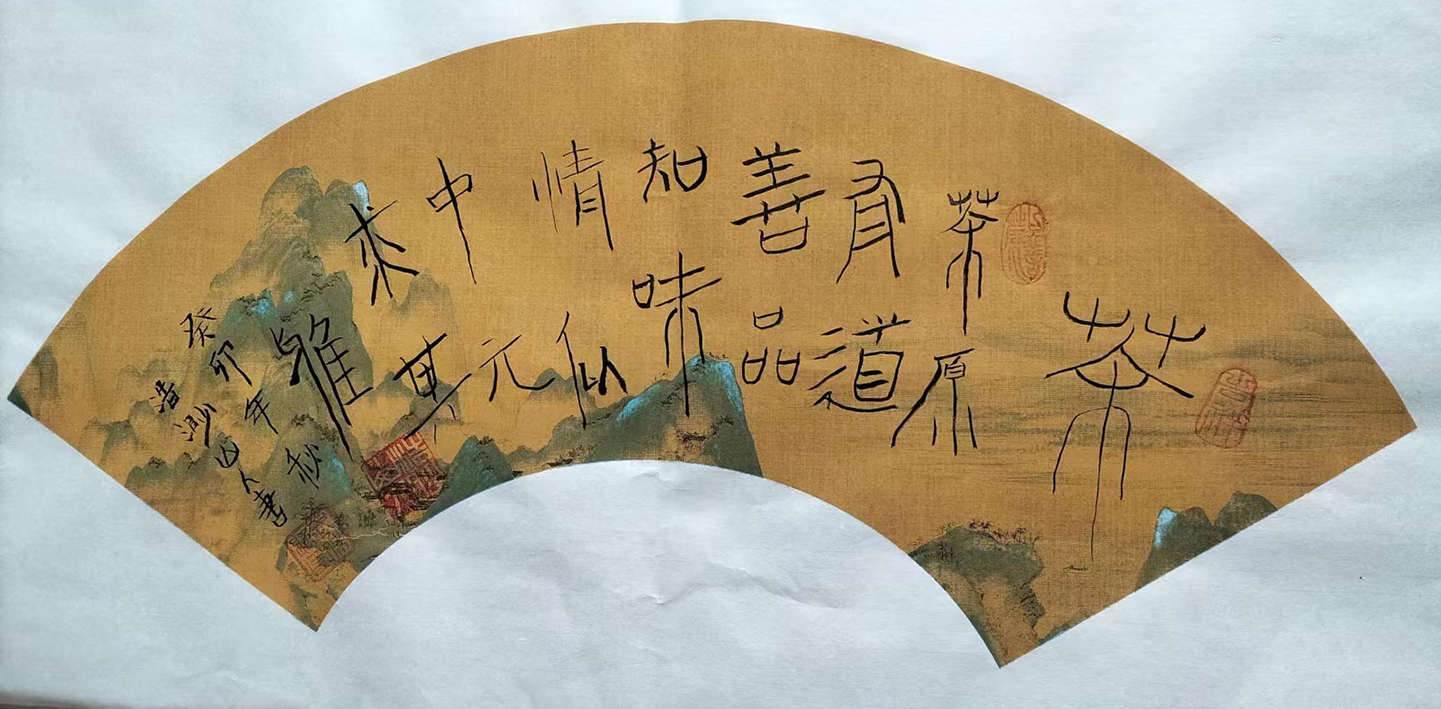 茶
茶原
有道
善品
知味
情似
中元
求其
雅
癸卯年秋
浩渺山人書